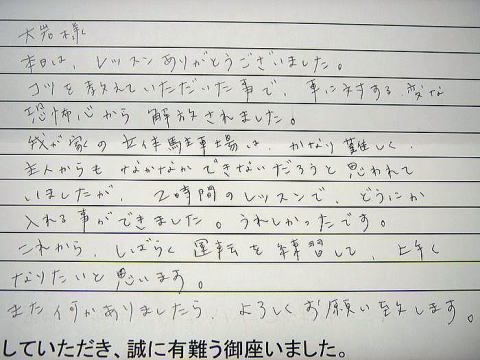 大岩様
本日は、レッスンありがとうございました。
コツを教えていただいた事で、車に対する変な
恐怖心から解放されました。
我が家の立体駐車場は、かなり難しく、
主人からもなかなかできないだろうと思われて
いましたが、2時間のレッスンで、どうにか
入れる事ができました。うれしかったです。
これから、しばらく運転を練習して、上手く
なりたいと思います。
また何かありましたら、よろしくお願い致します。
していただき、誠に有難う御座いました。